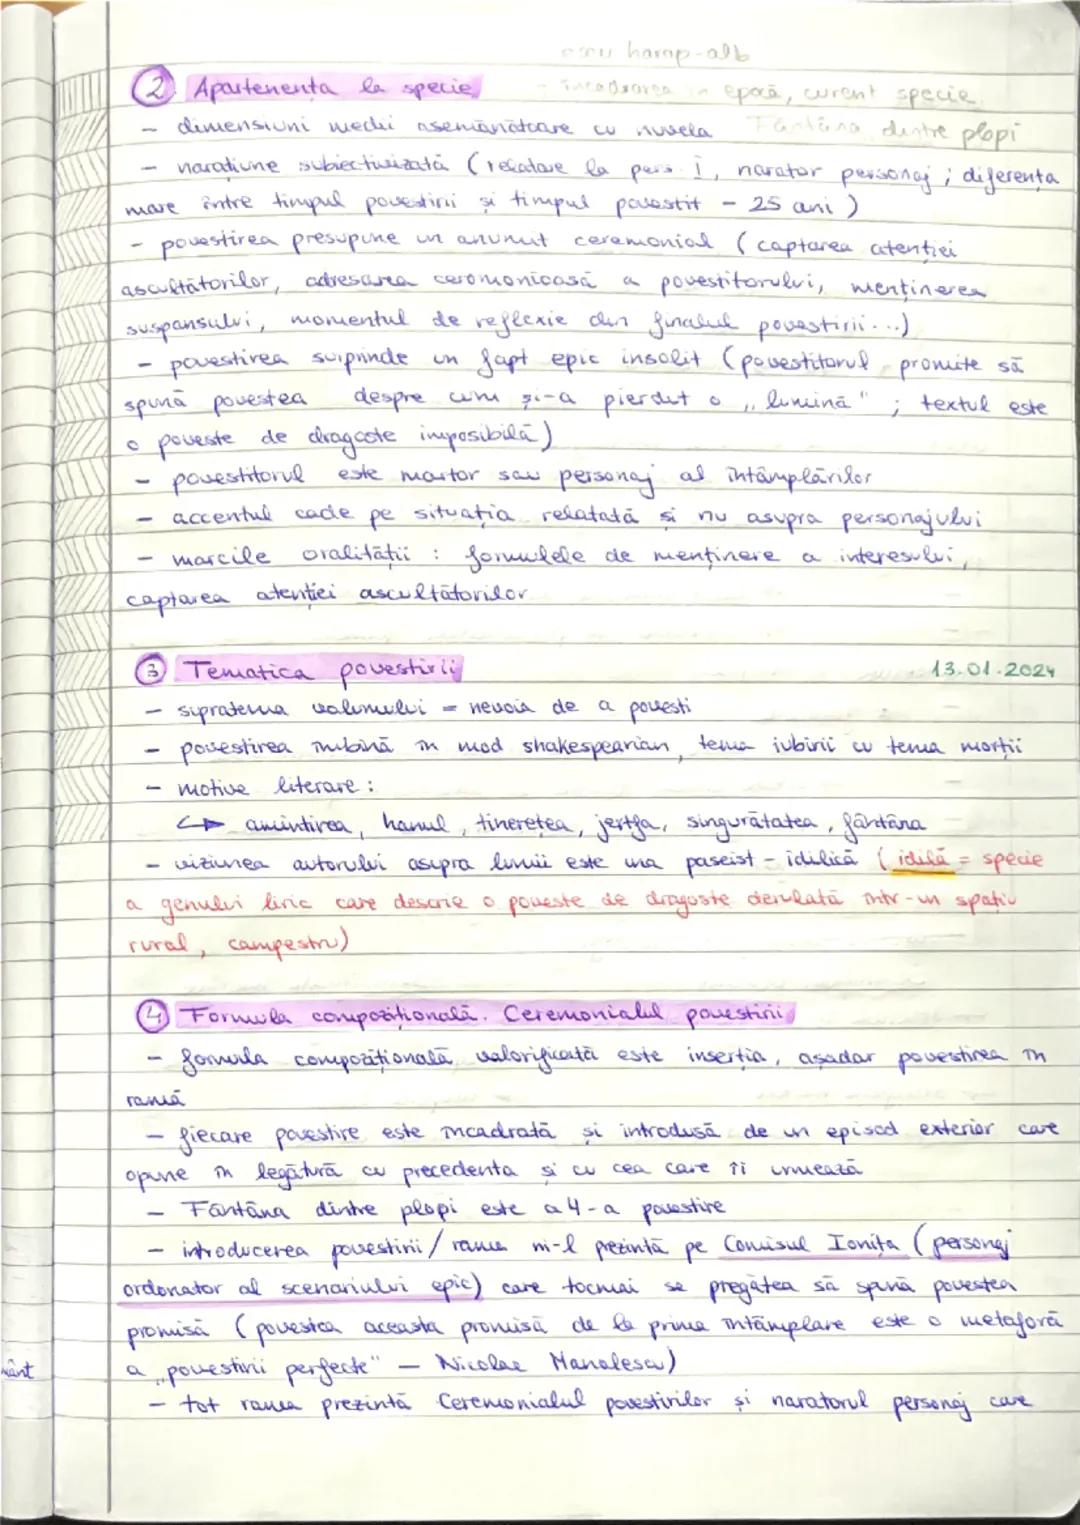 eseu harap-alb
② Apartenența la specie - încadrarea în epocă, curent specie
- dimensiuni medii asemănătoare cu nuvela Fântâna dintre plopi
- narațiune subiectivizată (relatare la pers. I, narator personaj; diferența
mare între timpul povestirii și timpul povestit - 25 ani)
- povestirea presupune un anumit ceremonial (captarea atenției
ascultătorilor, adresarea ceremonioasă a povestitorului, menținerea
suspansului, momentul de reflexie din finalul povestirii...)
- povestirea surprinde un fapt epic insolit (povestitorul promite să
spună povestea despre cum și-a pierdut o „lumină"; textul este
o poveste de dragoste imposibilă)
- povestitorul este martor sau personaj al întâmplărilor
- accentul cade pe situația relatată și nu asupra personajului
- marcile oralității: formulele de menținere a interesului,
captarea atenției ascultătorilor
③ Tematica povestirii 13.01.2024
- supratema volumului = nevoia de a povesti
- povestirea îmbină în mod shakespearian, tema iubirii cu tema morții
- motive literare:
↳ amintirea, hanul, tinerețea, jertfa, singurătatea, fântâna
- viziunea autorului asupra lumii este una paseist-idilică (idilă = specie
a genului liric care descrie o poveste de dragoste derulată într-un spațiu
rural, campestru)
④ Formula compozițională. Ceremonialul povestirii
- formula compozițională valorificată este inserția, așadar povestirea în
ramă
- fiecare povestire este încadrată și introdusă de un episod exterior care
opune în legătură cu precedenta și cu cea care îi urmează
- Fântâna dintre plopi este a 4-a povestire
- introducerea povestirii/rama ni-l prezintă pe Comisul Ioniță (personaj
ordonator al scenariului epic) care tocmai se pregătea să spună povestea
promisă (povestea aceasta promisă de la prima întâmplare este o metaforă
a „povestirii perfecte" - Nicolae Manolescu)
- tot rama prezintă Ceremonialul povestirilor și naratorul personaj care
vânt